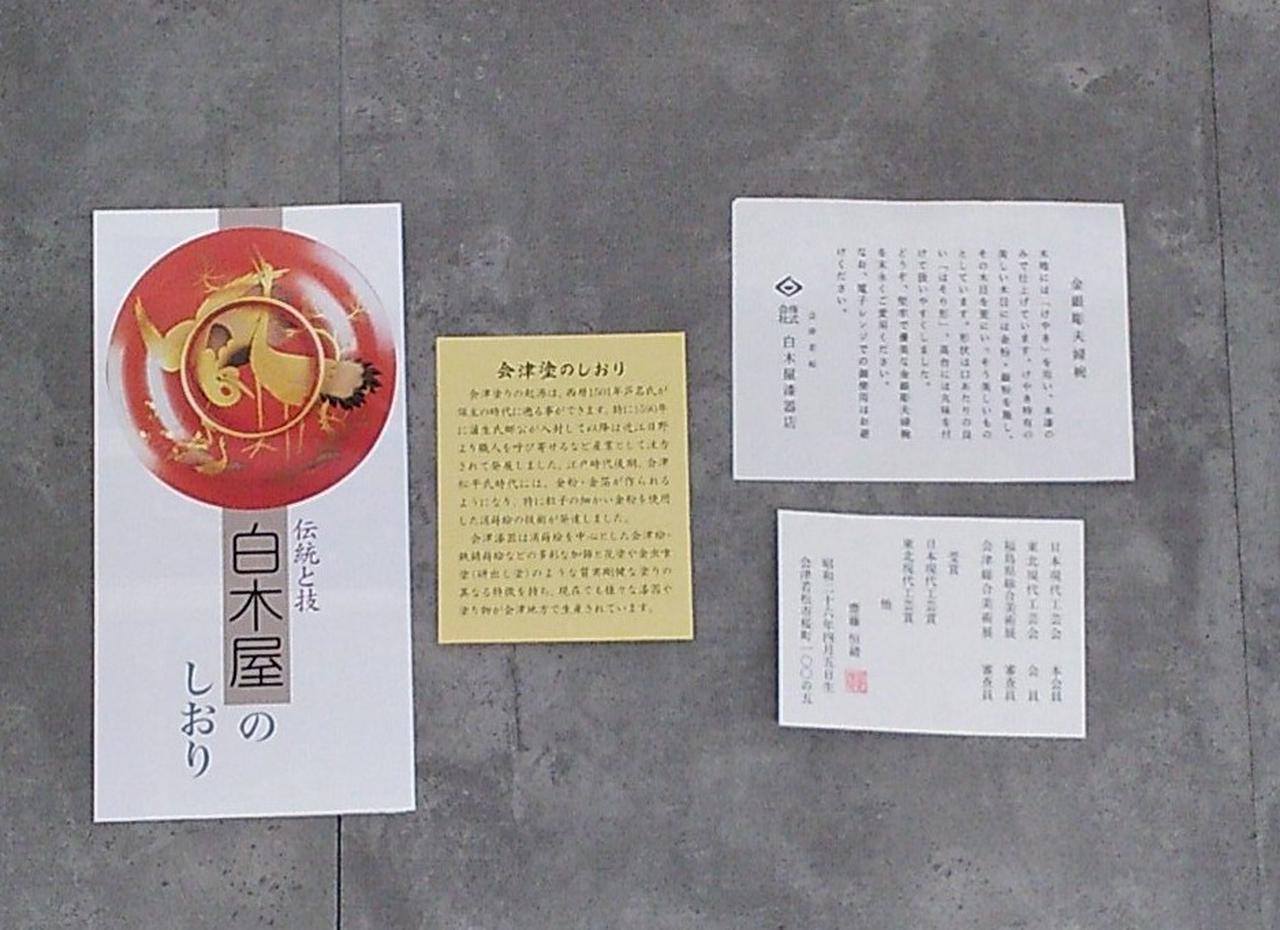 伝統と技
白木屋の
しおり
会津塗のしおり
会津塗りの起源は、西暦1501年芦名氏が
領主の時代に遡る事ができます。特に1590年
に蒲生氏郷公が入封して以降は近江日野
より職人を呼び寄せるなど産業として注力
されて発展しました。江戸時代後期、会津
松平氏時代には、金粉・金箔が作られる
ようになり、特に粒子の細かい金粉を使用
した消蒔絵の技術が発達しました。
会津漆器は消蒔絵を中心とした会津絵・
鉄錆蒔絵などの多彩な加飾と花塗や金虫喰
塗(研出し塗)のような質実剛健な塗りの
異なる特徴を持ち、現在でも様々な漆器や
塗り物が会津地方で生産されています。
金銀彫夫婦椀
木地には「けやき」を用い、本漆の
みで仕上げています。けやき特有の
美しい木目には金粉・銀粉を施し、
その木目を更にいっそう美しいもの
としています。形状は口あたりの良
い「はそり形」、高台には丸味を付
けて扱いやすくしました。
どうぞ、堅牢で優美な金銀彫夫婦椀
を末永くご愛用ください。
なお、電子レンジでの御使用はお避
けください。
会津若松
株式会社 白木屋漆器店
日本現代工芸会 本会員
東北現代工芸会 会員
福島県総合美術展 審査員
会津総合美術展 審査員
受賞
日本現代工芸賞
東北現代工芸賞
他
齋藤 恒
昭和二十六年四月五日生
会津若松市桜町一〇〇の五